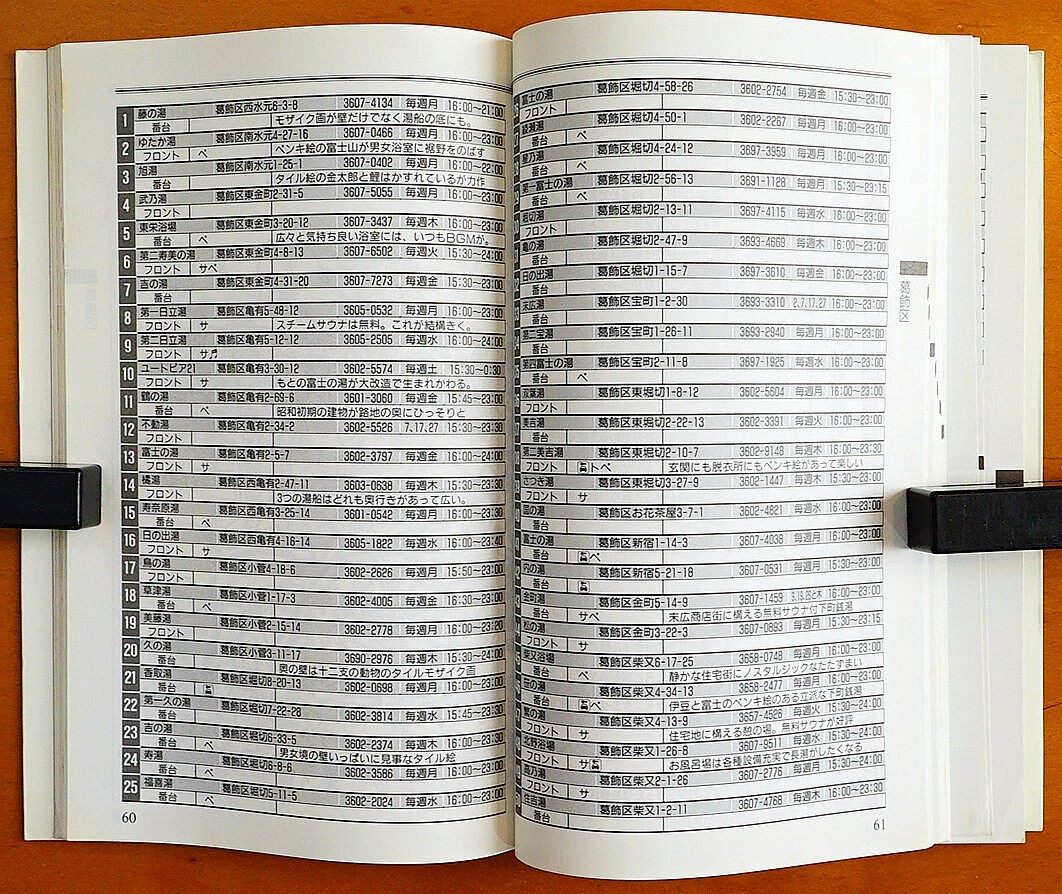 1 藤の湯 葛飾区西水元6-3-8 3607-4134 毎週月 16:00~21:00
番台 モザイク画が壁だけでなく湯船の底にも。
2 ゆたか湯 葛飾区南水元4-27-16 3607-0466 毎週月 16:00~23:00
フロント ペ ペンキ絵の富士山が男女浴室に裾野をのばす
3 旭湯 葛飾区南水元1-25-1 3607-0402 毎週月 16:00~22:00
番台 タイル絵の金太郎と鯉はかすれているが力作
4 武乃湯 葛飾区東金町2-31-5 3607-5055 毎週月 16:00~23:00
フロント
5 東栄浴場 葛飾区東金町3-20-12 3607-3437 毎週木 16:00~23:00
番台 ペ 広々と気持ち良い浴室には、いつもBGMが。
6 第二寿美の湯 葛飾区東金町4-8-13 3607-6502 毎週火 15:30~24:00
フロント サペ
7 吉の湯 葛飾区東金町4-31-20 3607-7273 毎週金 15:30~23:00
番台
8 第一日立湯 葛飾区亀有5-48-12 3605-0532 毎週月 16:00~23:00
フロント サ スチームサウナは無料。これが結構きく。
9 第二日立湯 葛飾区亀有5-12-12 3605-2505 毎週水 16:00~24:00
フロント サ♬
10 ユートピア21 葛飾区亀有3-30-12 3602-5574 毎週土 15:30~0:30
フロント サ もとの富士の湯が大改造で生まれかわる。
11 鶴の湯 葛飾区亀有2-69-6 3601-3060 毎週金 15:45~23:00
番台 ペ 昭和初期の建物が路地の奥にひっそりと
12 不動湯 葛飾区亀有2-34-2 3602-5526 7,17,27 15:30~23:30
フロント
13 富士の湯 葛飾区亀有2-5-7 3602-3797 毎週金 16:00~24:00
フロント サ
14 橘湯 葛飾区西亀有2-47-11 3603-0638 毎週木 15:30~23:30
フロント 3つの湯船はどれも奥行きがあって広い。
15 寿奈原湯 葛飾区西亀有3-25-14 3601-0542 毎週月 16:00~23:30
番台 ペ
16 日の出湯 葛飾区西亀有4-16-14 3605-1822 毎週水 16:00~23:40
フロント サ
17 鳥の湯 葛飾区小菅4-18-6 3602-2626 毎週月 15:50~23:00
フロント
18 草津湯 葛飾区小菅1-17-3 3602-4005 毎週金 16:30~23:00
番台 ペ
19 美藤湯 葛飾区小菅2-15-14 3602-2778 毎週月 16:00~23:20
フロント
20 久の湯 葛飾区小菅3-11-17 3690-2976 毎週木 15:30~24:00
番台 奥の壁は十二支の動物のタイルモザイク画
21 香取湯 葛飾区堀切8-20-13 3602-0698 毎週月 16:00~23:00
番台
22 第一久の湯 葛飾区堀切7-22-28 3602-3814 毎週水 15:45~23:30
番台
23 吉の湯 葛飾区堀切6-33-5 3602-2374 毎週木 16:00~23:30
番台 ペ 男女境の壁いっぱいに見事なタイル絵
24 寿湯 葛飾区堀切6-8-6 3602-3586 毎週月 16:00~23:00
番台 ペ
25 福喜湯 葛飾区堀切5-11-5 3602-2024 毎週水 16:00~23:00
番台 ペ
60
富士の湯 葛飾区堀切4-58-26 3602-2754 毎週金 15:30~23:00
フロント
綾瀬湯 葛飾区堀切4-50-1 3602-2267 毎週月 16:00~23:00
番台 ペ
星乃湯 葛飾区堀切4-24-12 3697-3959 毎週月 16:00~23:00
番台 ペ
第一富士の湯 葛飾区堀切2-56-13 3691-1128 毎週月 15:30~23:15
番台 ペ
堀切湯 葛飾区堀切2-13-11 3697-4115 毎週水 16:00~23:00
フロント
亀の湯 葛飾区堀切2-47-9 3693-4669 毎週木 16:00~23:00
番台
日の出湯 葛飾区堀切1-15-7 3697-3610 毎週金 16:00~23:00
番台
末広湯 葛飾区宝町1-2-30 3693-3310 2.7.17.27 16:00~23:00
番台
第二宝湯 葛飾区宝町1-26-11 3693-2940 毎週月 16:00~23:00
番台
第四富士の湯 葛飾区宝町2-11-8 3697-1925 毎週水 16:00~23:00
番台 ペ
双葉湯 葛飾区東堀切1-8-12 3602-5604 毎週月 16:00~23:00
フロント
美吉湯 葛飾区東堀切2-22-13 3602-3391 毎週火 16:00~23:00
番台
第二美吉湯 葛飾区東堀切2-10-7 3602-9148 毎週木 16:00~23:30
フロント トペ 玄関にも脱衣所にもペンキ絵があって楽しい
さつき湯 葛飾区東堀切3-27-9 3602-1447 毎週木 15:30~23:00
フロント サ
葛飾区お花茶屋3-7-1 3602-4821 毎週水 16:00~23:00
番台
富士の湯 葛飾区新宿1-14-3 3607-4038 毎週月 16:00~23:00
番台 ペ
内の湯 葛飾区新宿5-21-18 3607-0531 毎週月 15:30~23:00
番台
金町湯 葛飾区金町5-14-9 3607-1459 16:00~23:00
番台 サペ 末広商店街に構える無料サウナ付下町銭湯
松の湯 葛飾区金町3-22-3 3607-0893 毎週月 15:30~23:15
フロント サ
柴又浴場 葛飾区柴又6-17-25 3658-0748 毎週月 16:00~23:00
番台 ペ 静かな住宅街にノスタルジックなたたずまい
葛飾区柴又4-34-13 3658-2477 毎週月 16:00~23:00
番台 ペ 伊豆と富士のペンキ絵のある立派な下町銭湯
葛飾区柴又4-13-9 3657-4526 毎週火 15:30~24:00
フロント サ 住宅地に構える憩の場。無料サウナが好評
北野浴場 葛飾区柴又1-26-8 3607-9511 毎週水 15:30~24:00
フロント サ お風呂場は各種設備充実で長湯がしたくなる
葛飾区柴又2-1-26 3607-2776 毎週月 15:30~24:00
フロント サ
住吉湯 葛飾区柴又1-2-11 3607-4768 毎週木 16:00~23:30
番台
61
葛飾区